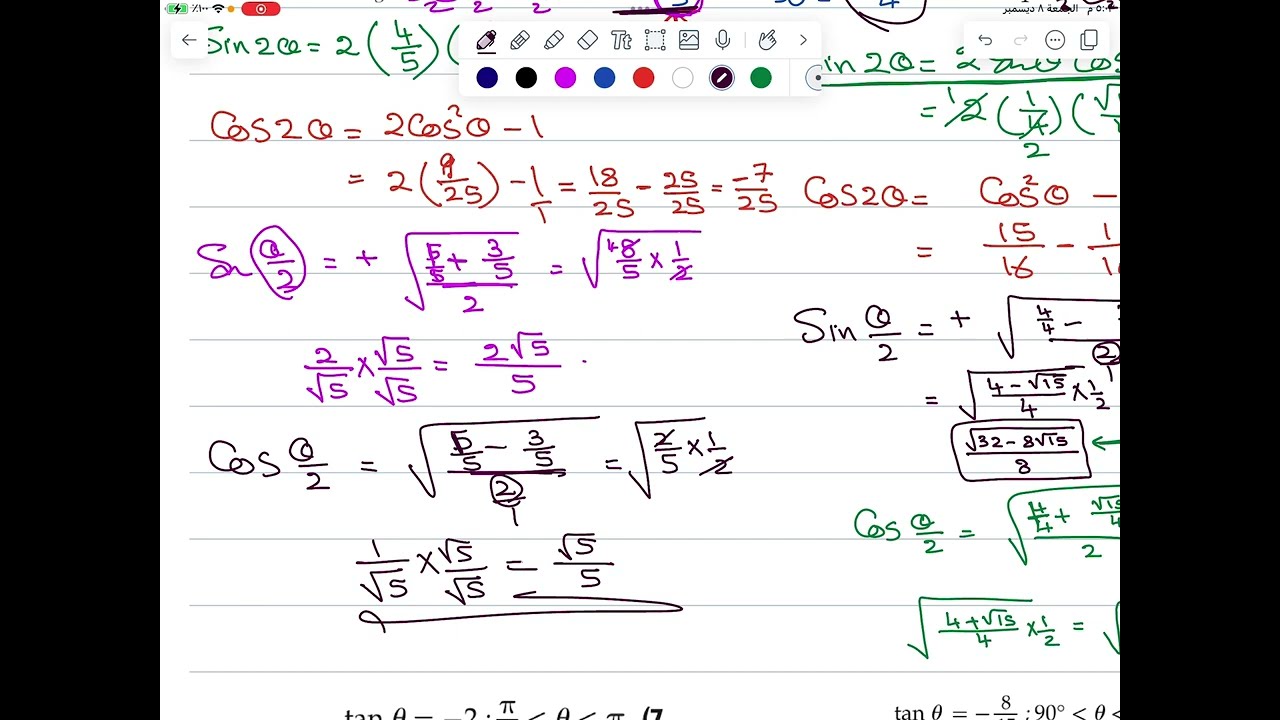 ١٠٠٪
٥:٠٢ م الجمعة ٨ ديسمبر
Tt
Sin2θ = 2(4/5)(
Cos2θ = 2Cos²θ - 1
= 2(9/25) - 1/1 = 18/25 - 25/25 = -7/25
Sin θ/2 = + √((5/5 + 3/5)/2) = √(8/5 × 1/2)
2/√5 × √5/√5 = 2√5/5
Cos θ/2 = √((5/5 - 3/5)/2) = √(2/5 × 1/2)
1/√5 × √5/√5 = √5/5
tan θ = -2 ; π/2 < θ < π (7
in 2θ = 2 sinθ cos
= 2(1/4)(√
Cos2θ = Cos²θ -
= 15/16 - 1
Sin θ/2 = + √(4/4 -
= √((4-√15)/4 × 1/2)
√(32-8√15)/8
Cos θ/2 = √((4/4 + √15/4)/2
√((4+√15)/4 × 1/2) =
tan θ = -8 ; 90° < θ <